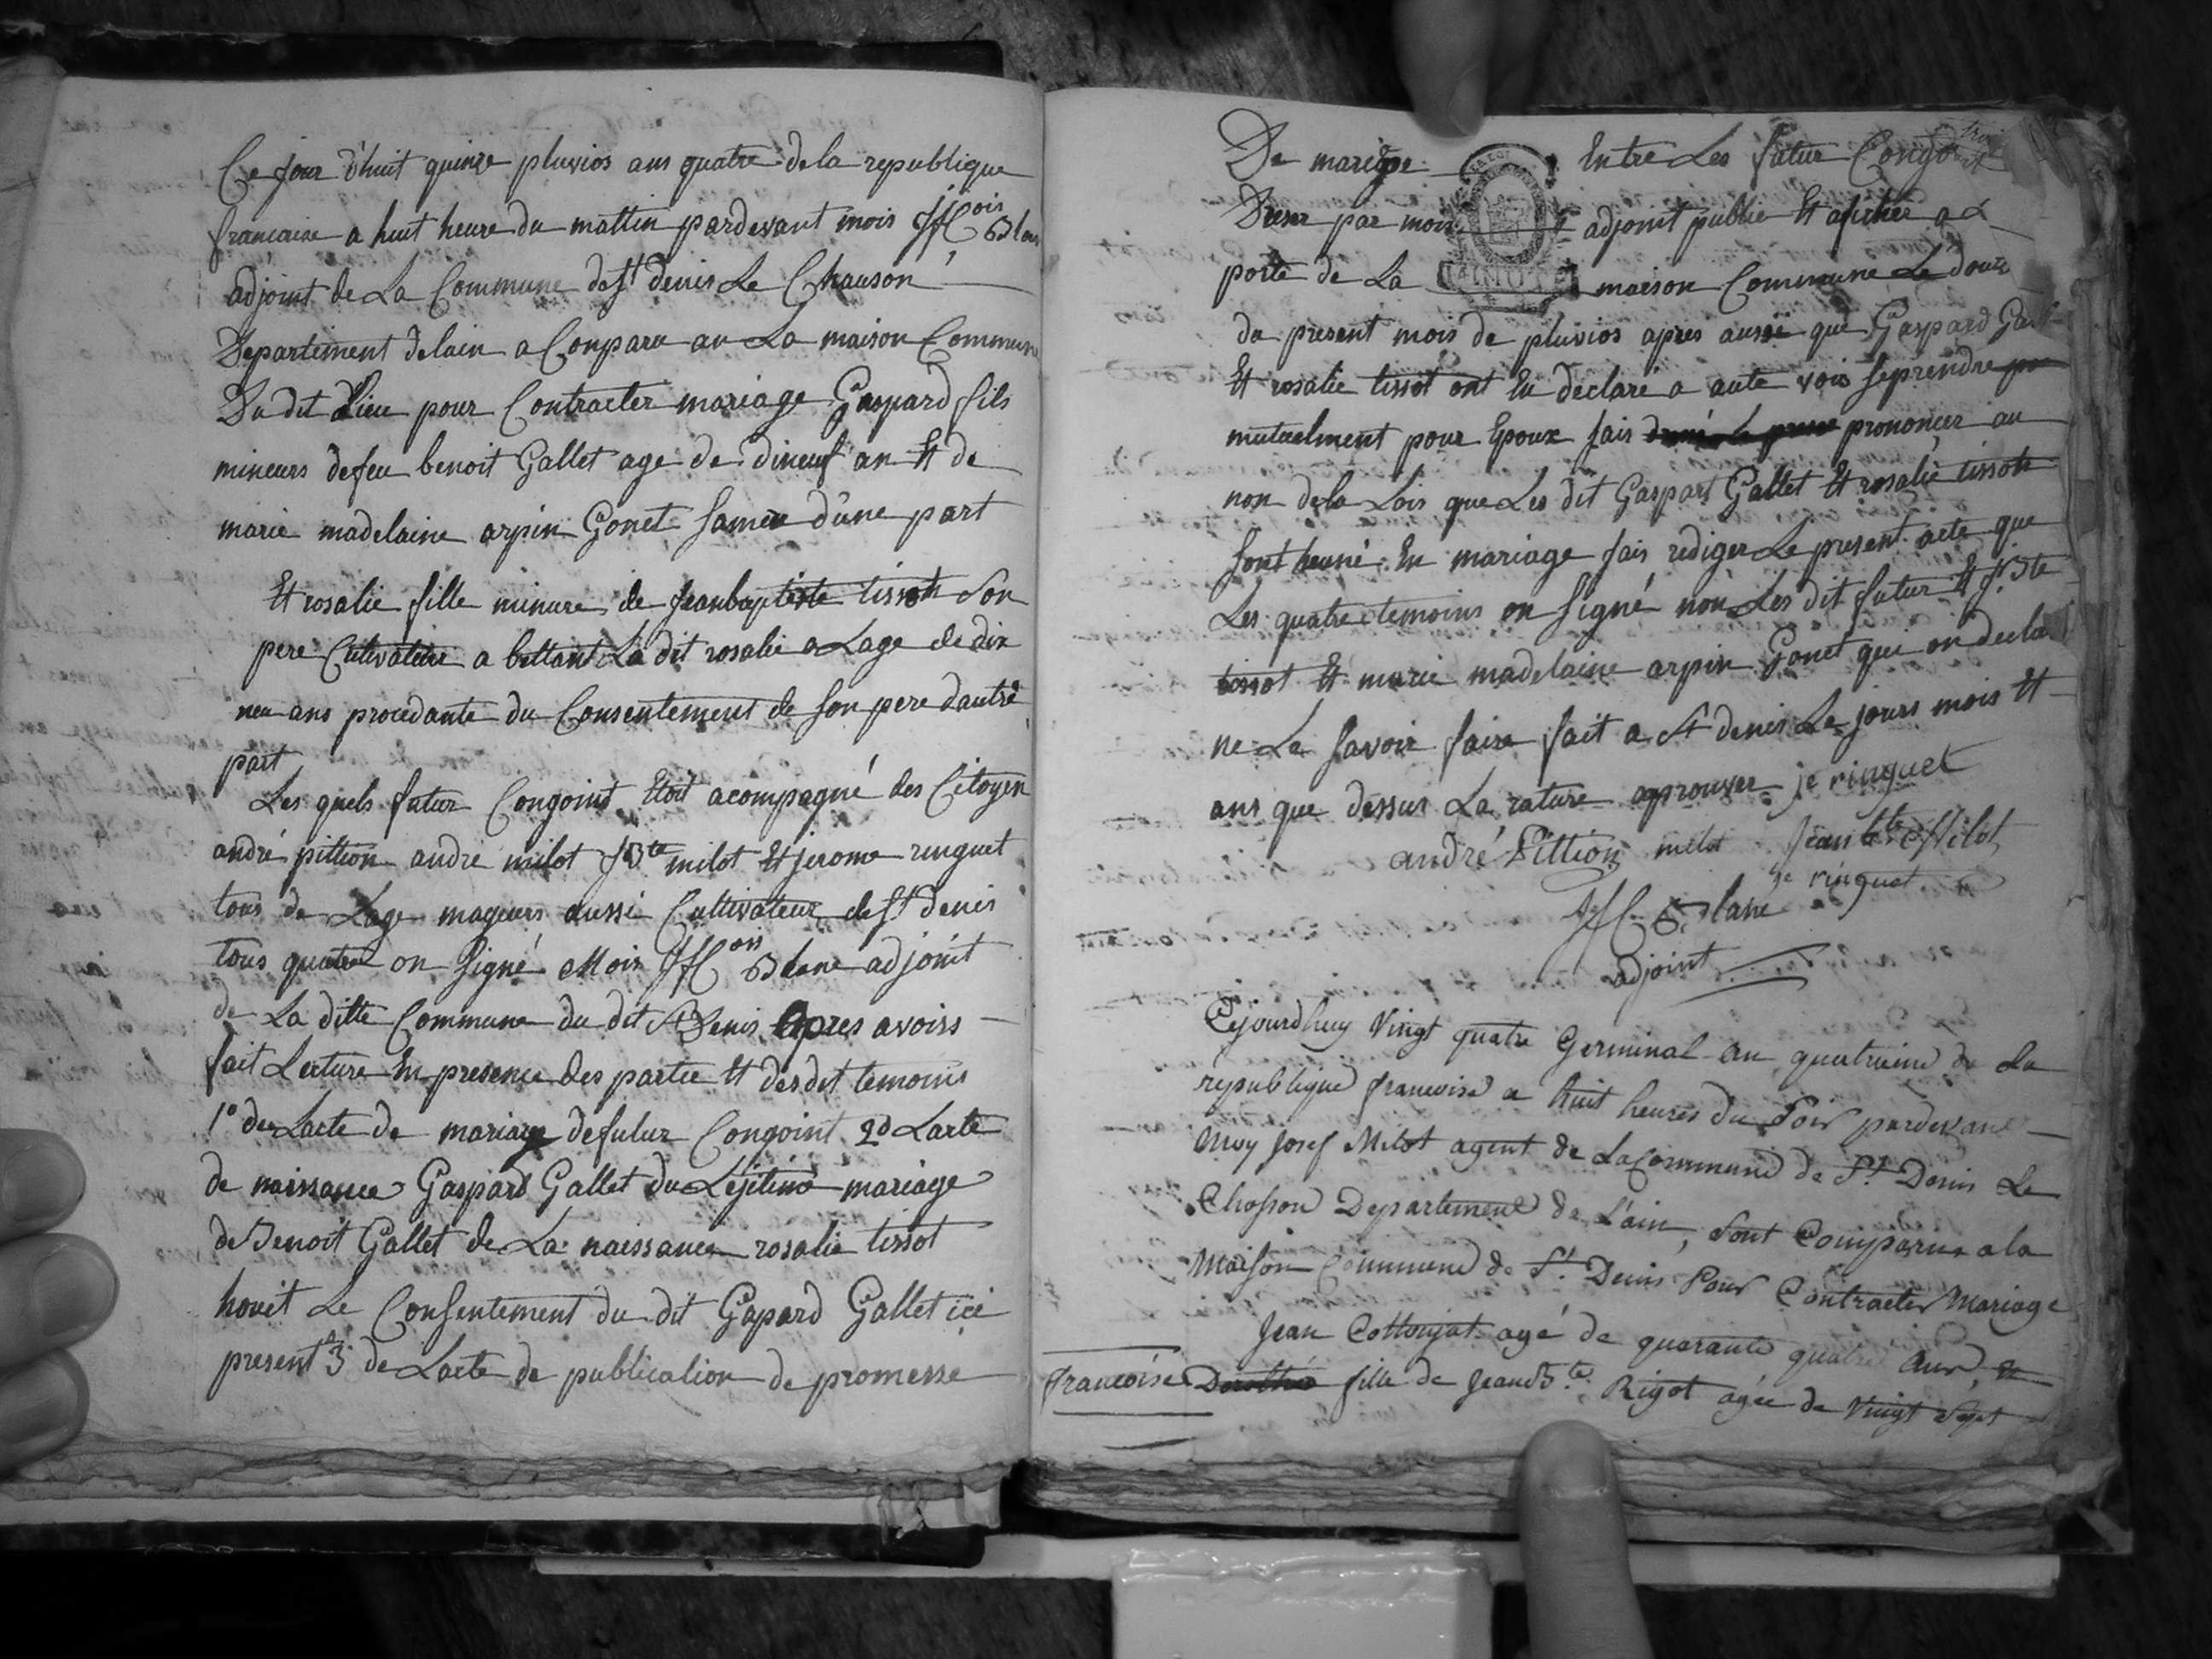 Ce jour d'huit quinze pluvios ans quatre de la republique
francaise a huit heure du mattin pardevant mois ois Blan
adjoint de La Commune de St denis Le Chauson
Departement delain a Conparu au La maison Commune
Du dit Lieu pour Contracter mariage Gaspard fils
mineurs defeu benoit Gallet age de dineuf an Et de
marie madelaine arpin Gonet samere d'une part
Et rosalie fille minure de Jeanbaptiste tissot Son
pere Cultivateur a bettant La dit rosalie a Lage de dix
neu ans procedante du Consentement de son pere dautre
part
Les quels futur Congoint Etoit acompagné des Citoyen
andré pittion andre milot JBte milot Et jerome ringuet
tous de Lage mageurs aussi Cultivateur de St denis
tous quatre on Signé Mois ois Blanc adjoint
de La ditte Commune du dit St Denis Apres avoirs
fait Lecture En presence des partie Et desdit temoins
1° de Lacte de mariage defutur Congoint 2d Lacte
de naissance Gaspard Gallet du Lejitime mariage
de Benoit Gallet de La naissance rosalie tissot
houit Le Consentement du dit Gaspard Gallet ici
present 3 de Lacte de publication de promesse
De mariage Entre Les futur Congoint
Dresser par mois adjoint publie Et aficher a
porte de La maison Commune Le douze
du present mois de pluvios apres aussi que Gaspard Gall
Et rosalie tissot ont Eu declaré a aute vois seprendre
mutuelment pour Epoux fais prononcer au
non dela Lois que Les dit Gaspart Gallet Et rosalie tissot
sont heuné En mariage fais rediger Le present acte que
Les quatre temoins on Signé non Les dit futur Et JBte
tissot Et marie madelaine arpin Gonet qui on decla
ne Le savoir faire fait a St denis Le jours mois Et
ans que dessus La rature aprouver je ringuet
andré Pittion milot Jean Bte Milot
je ringuet
Blanc
adjoint
Cejourdhuy Vingt quatre Germinal an quatrieme de La
republique francoise a huit heures du Soir pardevant
Moy Josef Milot agent de La Commune de St Denis Le
Chosson Departement de L'ain, Sont Comparus a la
Maison Commune de St Denis Pour Contracter Mariage
Jean Cottonjat agé de quarante quatre ans, et
francoise Dorothée fille de JeanBte Rigot agée de Vingt Sept